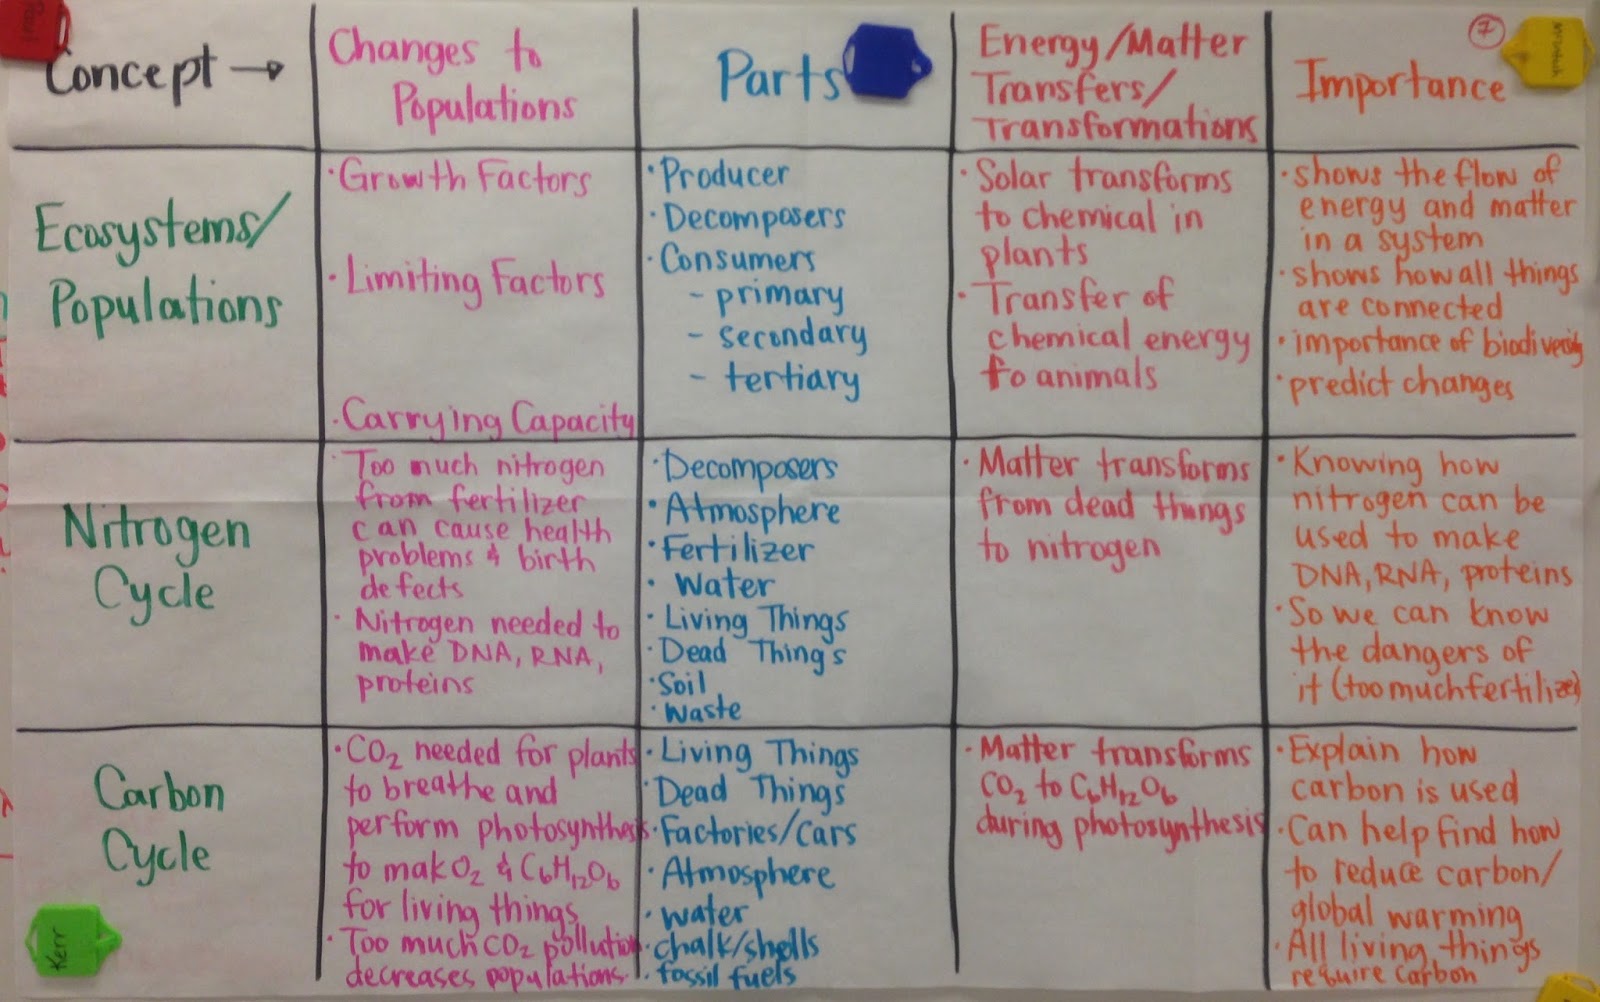 Concept →
Changes to
Populations
Parts
Energy/Matter
Transfers/
Transformations
7
Importance
Ecosystems/
Populations
· Growth Factors
· Limiting Factors
· Carrying Capacity
· Producer
· Decomposers
· Consumers
- primary
- secondary
- tertiary
· Solar transforms
to chemical in
plants
· Transfer of
chemical energy
to animals
· shows the flow of
energy and matter
in a system
· shows how all things
are connected
· importance of biodiversity
· predict changes
Nitrogen
Cycle
· Too much nitrogen
from fertilizer
can cause health
problems & birth
defects
· Nitrogen needed to
make DNA, RNA,
proteins
· Decomposers
· Atmosphere
· Fertilizer
· Water
· Living Things
· Dead Things
· Soil
· waste
· Matter transforms
from dead things
to nitrogen
· Knowing how
nitrogen can be
used to make
DNA, RNA, proteins
· So we can know
the dangers of
it (too much fertilizer)
Carbon
Cycle
· CO2 needed for plants
to breathe and
perform photosynthesis
to mak O2 & C6H12O6
for living things
· Too much CO2 pollution
decreases populations.
· Living Things
· Dead Things
· Factories/Cars
· Atmosphere
· water
· chalk/shells
· fossil fuels
· Matter transforms
CO2 to C6H12O6
during photosynthesis
· Explain how
carbon is used
· Can help find how
to reduce carbon/
global warming
· All living things
require carbon
Kerr